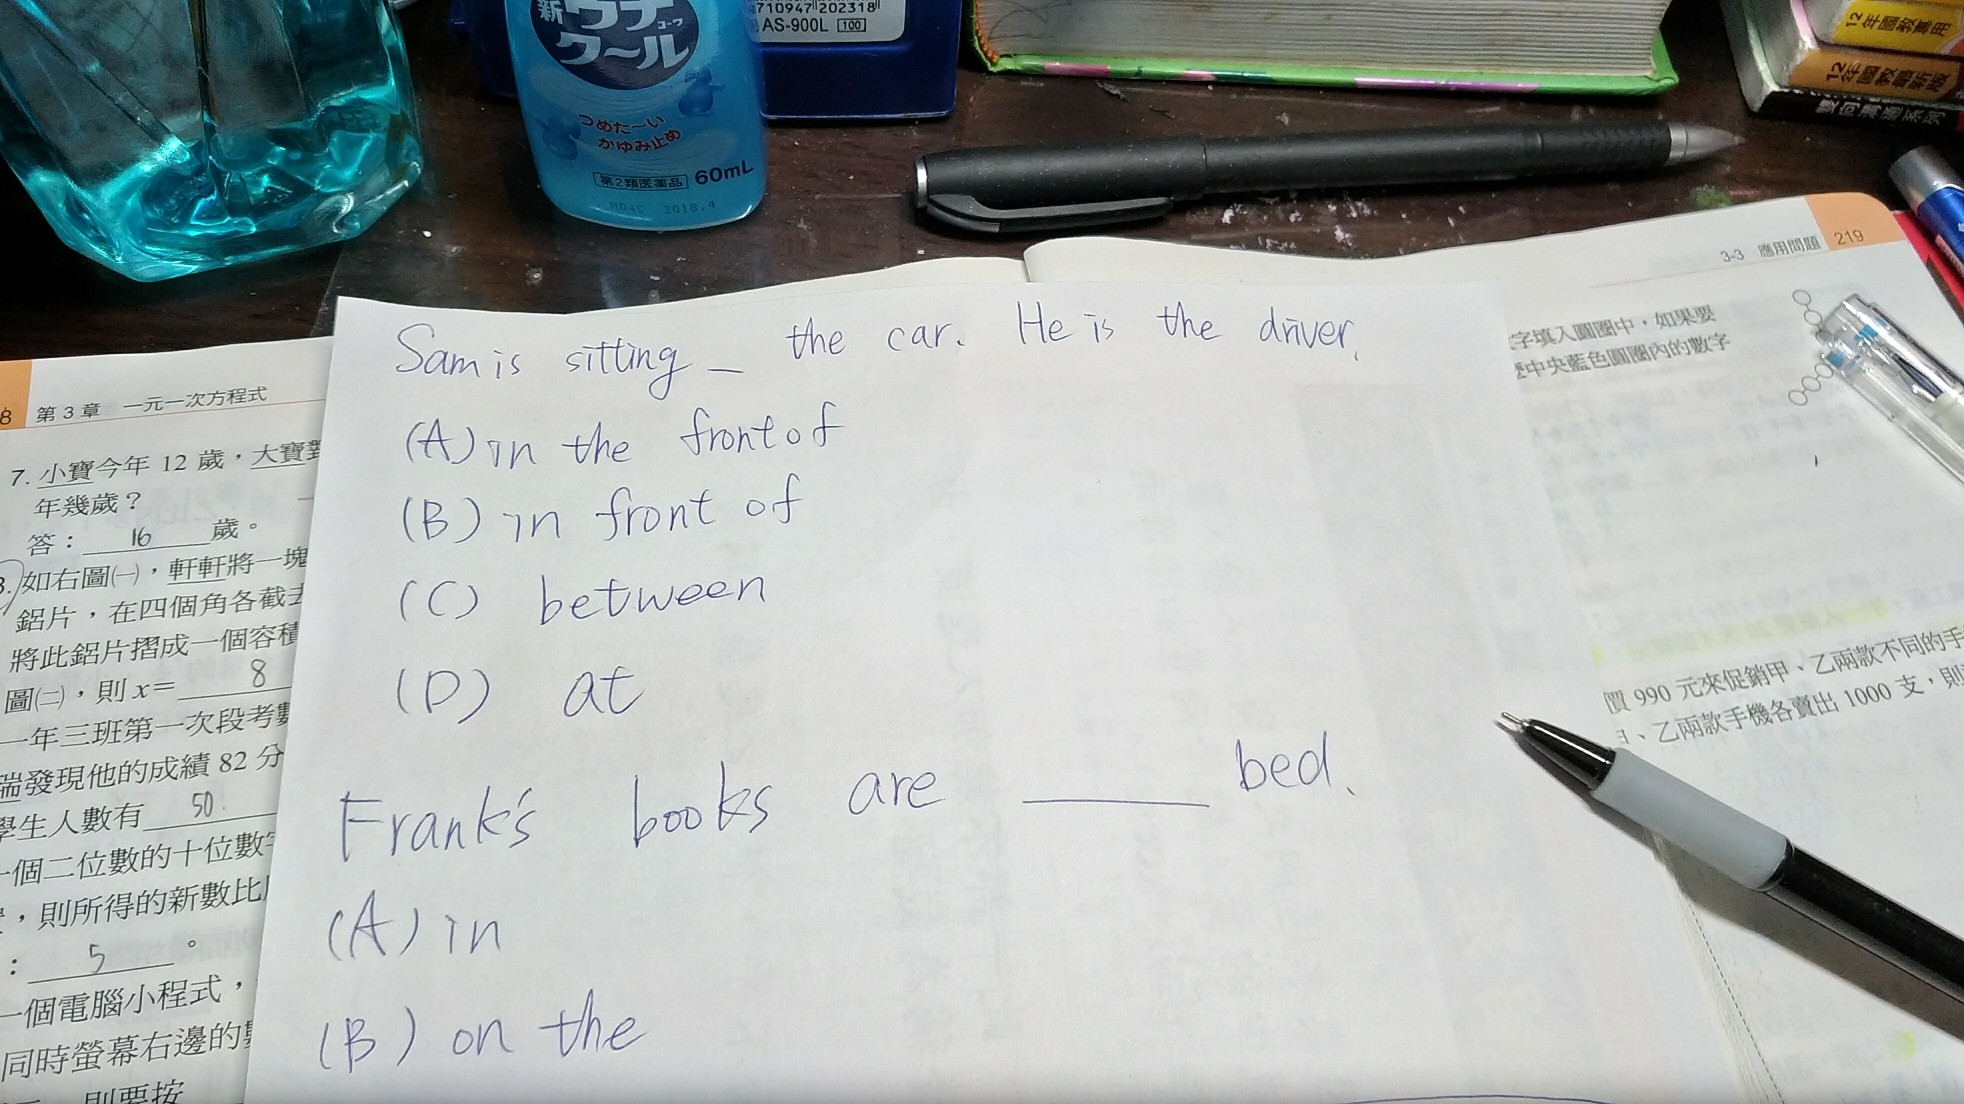 新ウナ
コーワ
クール
つめた〜い
かゆみ止め
第2類医薬品 60mL
M04C 2018.4
710947 202318
AS-900L 100
12年國教專用
12年國教
3-3 應用問題 219
字填入圓圈中,如果要
中央藍色圓圈內的數字
價 990 元來促銷甲、乙兩款不同的手
、乙兩款手機各賣出 1000 支,則
8 第 3 章 一元一次方程式
7. 小寶今年 12 歲,大寶
年幾歲?
答: 16 歲。
如右圖㈠,軒軒將一塊
鋁片,在四個角各截去
將此鋁片摺成一個容積
圖㈡,則 x= 8
一年三班第一次段考
發現他的成績 82 分
學生人數有 50
一個二位數的十位數字
,則所得的新數比
: 5 。
一個電腦小程式,
同時螢幕右邊的
則要按
Sam is sitting _ the car. He is the driver.
(A) in the front of
(B) in front of
(C) between
(D) at
Frank's books are ____ bed.
(A) in
(B) on the